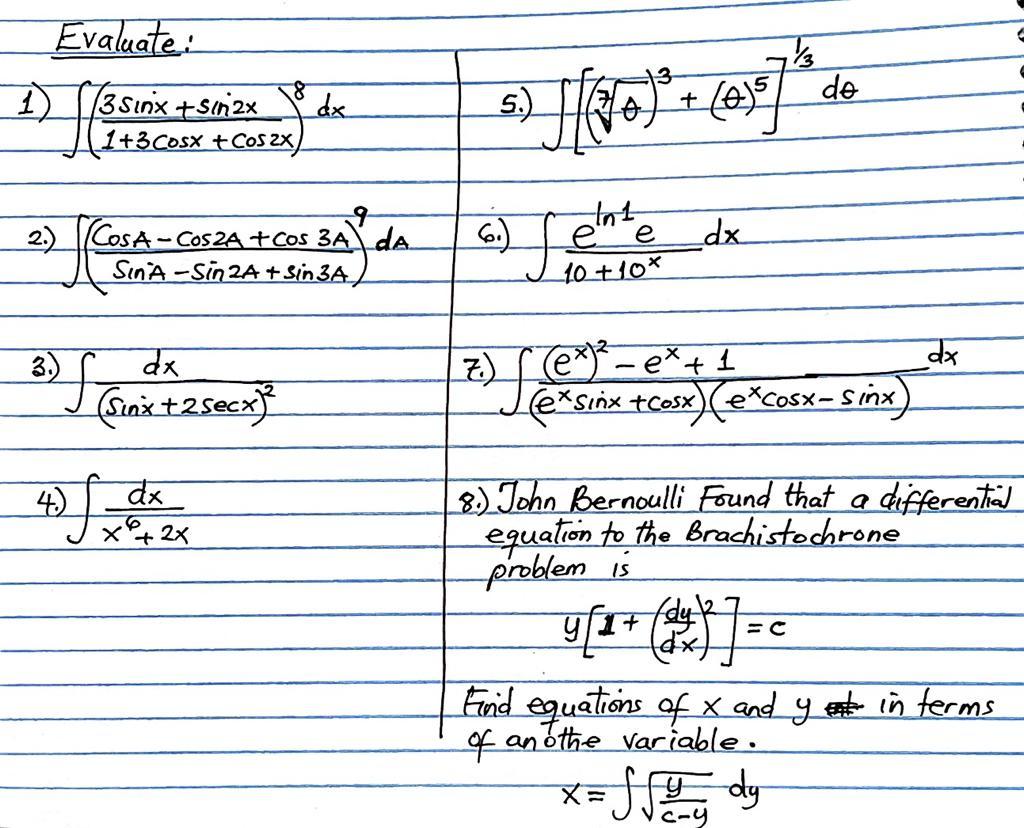 Evaluate:
1) ∫((3sinx + sin2x)/(1+3cosx + cos2x))⁸ dx
2.) ∫((CosA - Cos2A + Cos 3A)/(SinA - Sin2A + sin3A))⁹ dA
3.) ∫ dx/(sinx + 2secx)²
4.) ∫ dx/(x⁶ + 2x)
5.) ∫[(⁷√θ)³ + (θ)⁵]^(1/3) dθ
6.) ∫ (e^(ln1) e)/(10 + 10ˣ) dx
7.) ∫ ((eˣ)² - eˣ + 1)/((eˣsinx + cosx)(eˣcosx - sinx)) dx
8.) John Bernoulli Found that a differential
equation to the Brachistochrone
problem is
y[1 + (dy/dx)²] = c
Find equations of x and y in terms
of anothe variable.
x = ∫√(y/(c-y)) dy